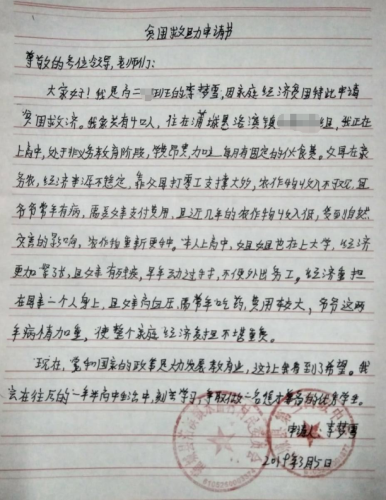 贫困救助申请书
尊敬的各位领导,老师们:
大家好!我是高二 班的李梦雪,因家庭经济贫困特此申请
贫困救济。我家共有4口人,住在蒲城县洛滨镇 组,我正在
上高中,处于非义务教育阶段,学费昂贵,加上每月有固定的伙食费。父母在家
务农,经济来源不稳定,靠父母打零工支撑大多,农作物收入不好,且
爷爷常年有病,需要支付费用,且近几年的农作物收入低,受到自然
灾害的影响,农作物重新更种。本人上高中,姐姐也在上大学,经济
更加紧张,且父亲有残疾,早年动过手术,不便外出务工。经济重担
在母亲一个人身上,且母亲高血压,需常年吃药,费用较大,爷爷这两
年病情加重,使整个家庭经济负担不堪重负。
现在,党和国家的政策大力发展教育业,这让我看到了希望。我
会在往后的一年半高中生活中,刻苦学习,争取做一名德才兼备的优秀学生。
申请人:李梦雪
2019年3月5日